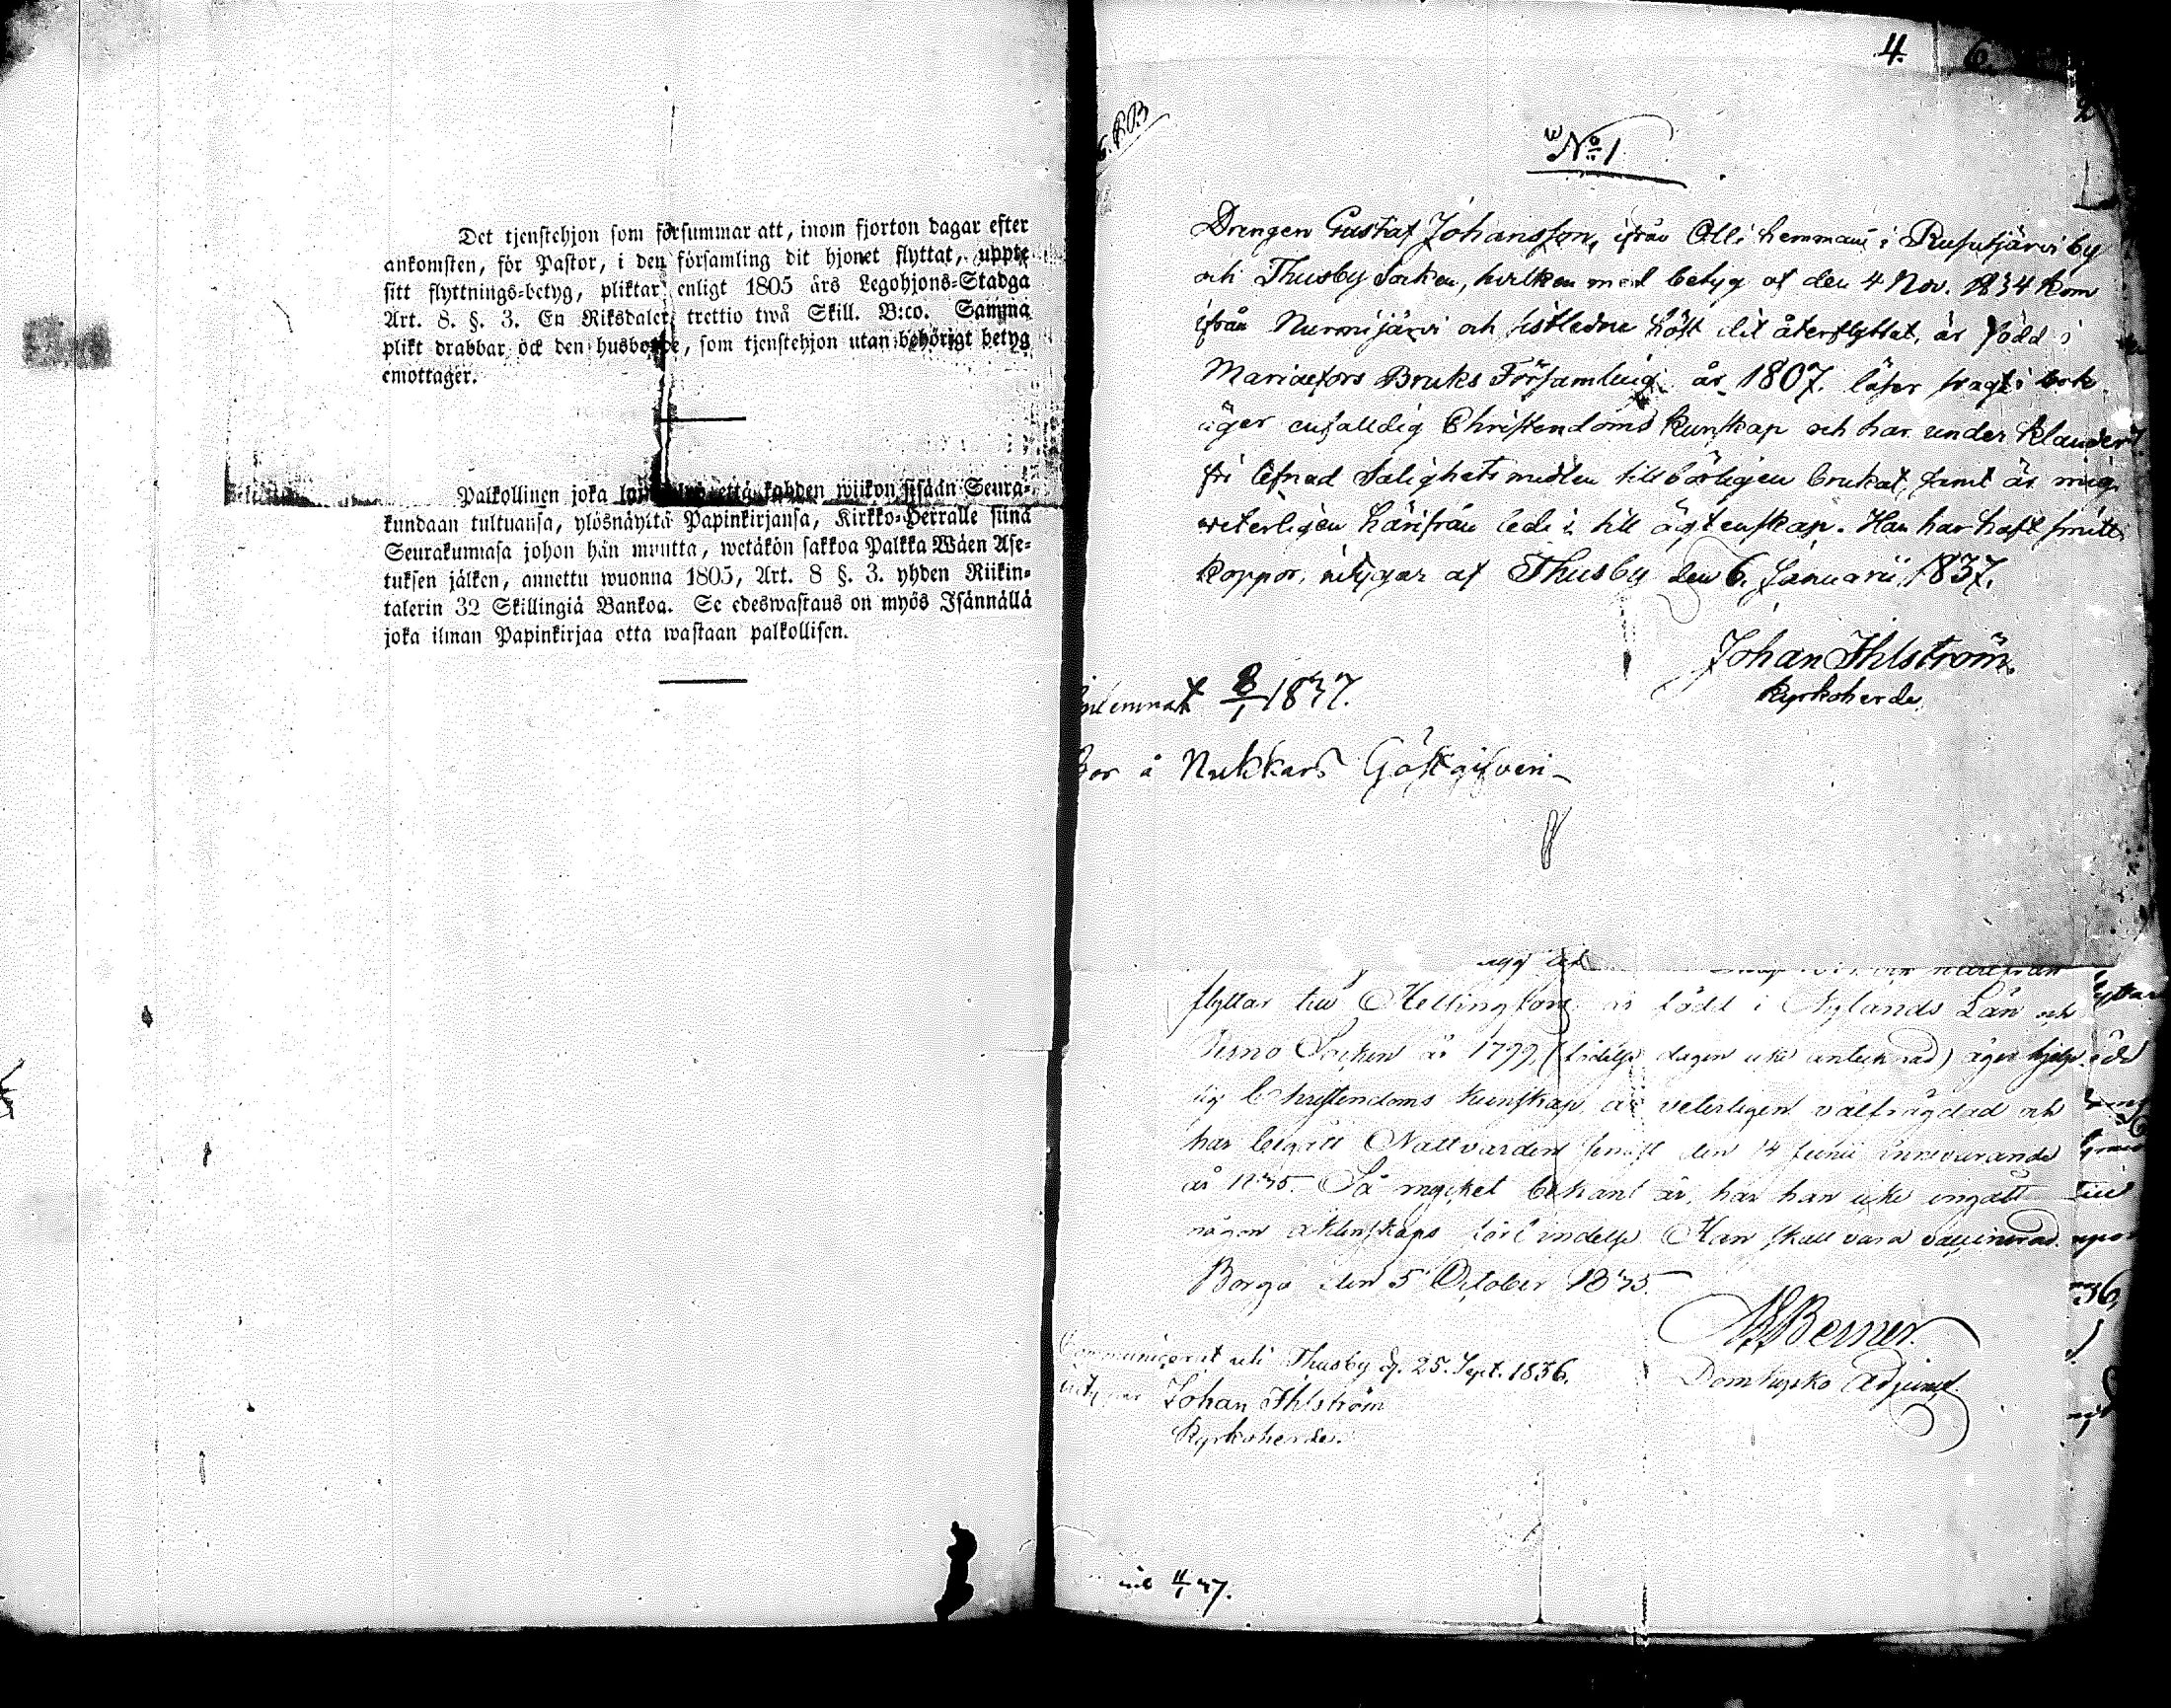 Det tjenstehjon som försummar att, inom fjorton dagar efter
ankomsten, för Pastor, i den församling dit hjonet flyttat, uppte
sitt flyttnings-betyg, pliktar enligt 1805 års Legohjons-Stadga
Art. 8. §. 3. En Riksdaler trettio twå Skill. B:co. Samma
plikt drabbar ock den husbonde, som tjenstehjon utan behörigt betyg
emottager.
Palkollinen joka kahden wiikon sisään Seura-
kundaan tultuansa, ylösnäyttä Papinkirjansa, Kirkko-Herralle siinä
Seurakunnasa johon hän muutta, wetäkön sakkoa Palkka Wäen Ase-
tuksen jälken, annettu wuonna 1805, Art. 8 §. 3. yhden Riikin-
talerin 32 Skillingiä Bankoa. Se edeswastaus on myös Isännällä
joka ilman Papinkirjaa otta wastaan palkollisen.
4. 6.
No 1
Drengen Gustaf Johansson, ifrån Olli hemman i Rusutjärvi by
och Thusby Socken, hvilken med betyg af den 4 Nov. 1834 kom
ifrån Nurmijärvi och sistledne höst dit återflyttat, är född i
Mariaefors Bruks Församling år 1807. läser svagt i bok
äger enfalldig Christendoms kunskap och har under klander
fri lefnad Salighetsmedlen tillbörligen brukat, samt är mig
veterligen härifrån ledig till ägtenskap. Han har haft smitt
koppor, intygar af Thusby den 6. Januarii 1837.
Johan Ihlström
Kyrkoherde.
Inlemnat 8/1 1837.
Bor å Nukkars Gästgifveri
flyttar till Helsingfors är född i Nylands Län och
Perno Socken år 1799, (födelse dagen icke antecknad) äger hjelp-
lig Christendoms Kunskap, är veterligen välfrägdad och
har begått Nattvarden senast den 14 Junii innevarande
år 1835. Så mycket bekant är, har han icke ingått
någon äktenskaps förbindelse. Han skall vara vaccinerad.
Borgo den 5 October 1835.
Berner.
Domkyrko Adjunct.
Communicerat uti Thusby d. 25. Sept. 1836.
Johan Ihlström
Kyrkoherde.
11/1 37.